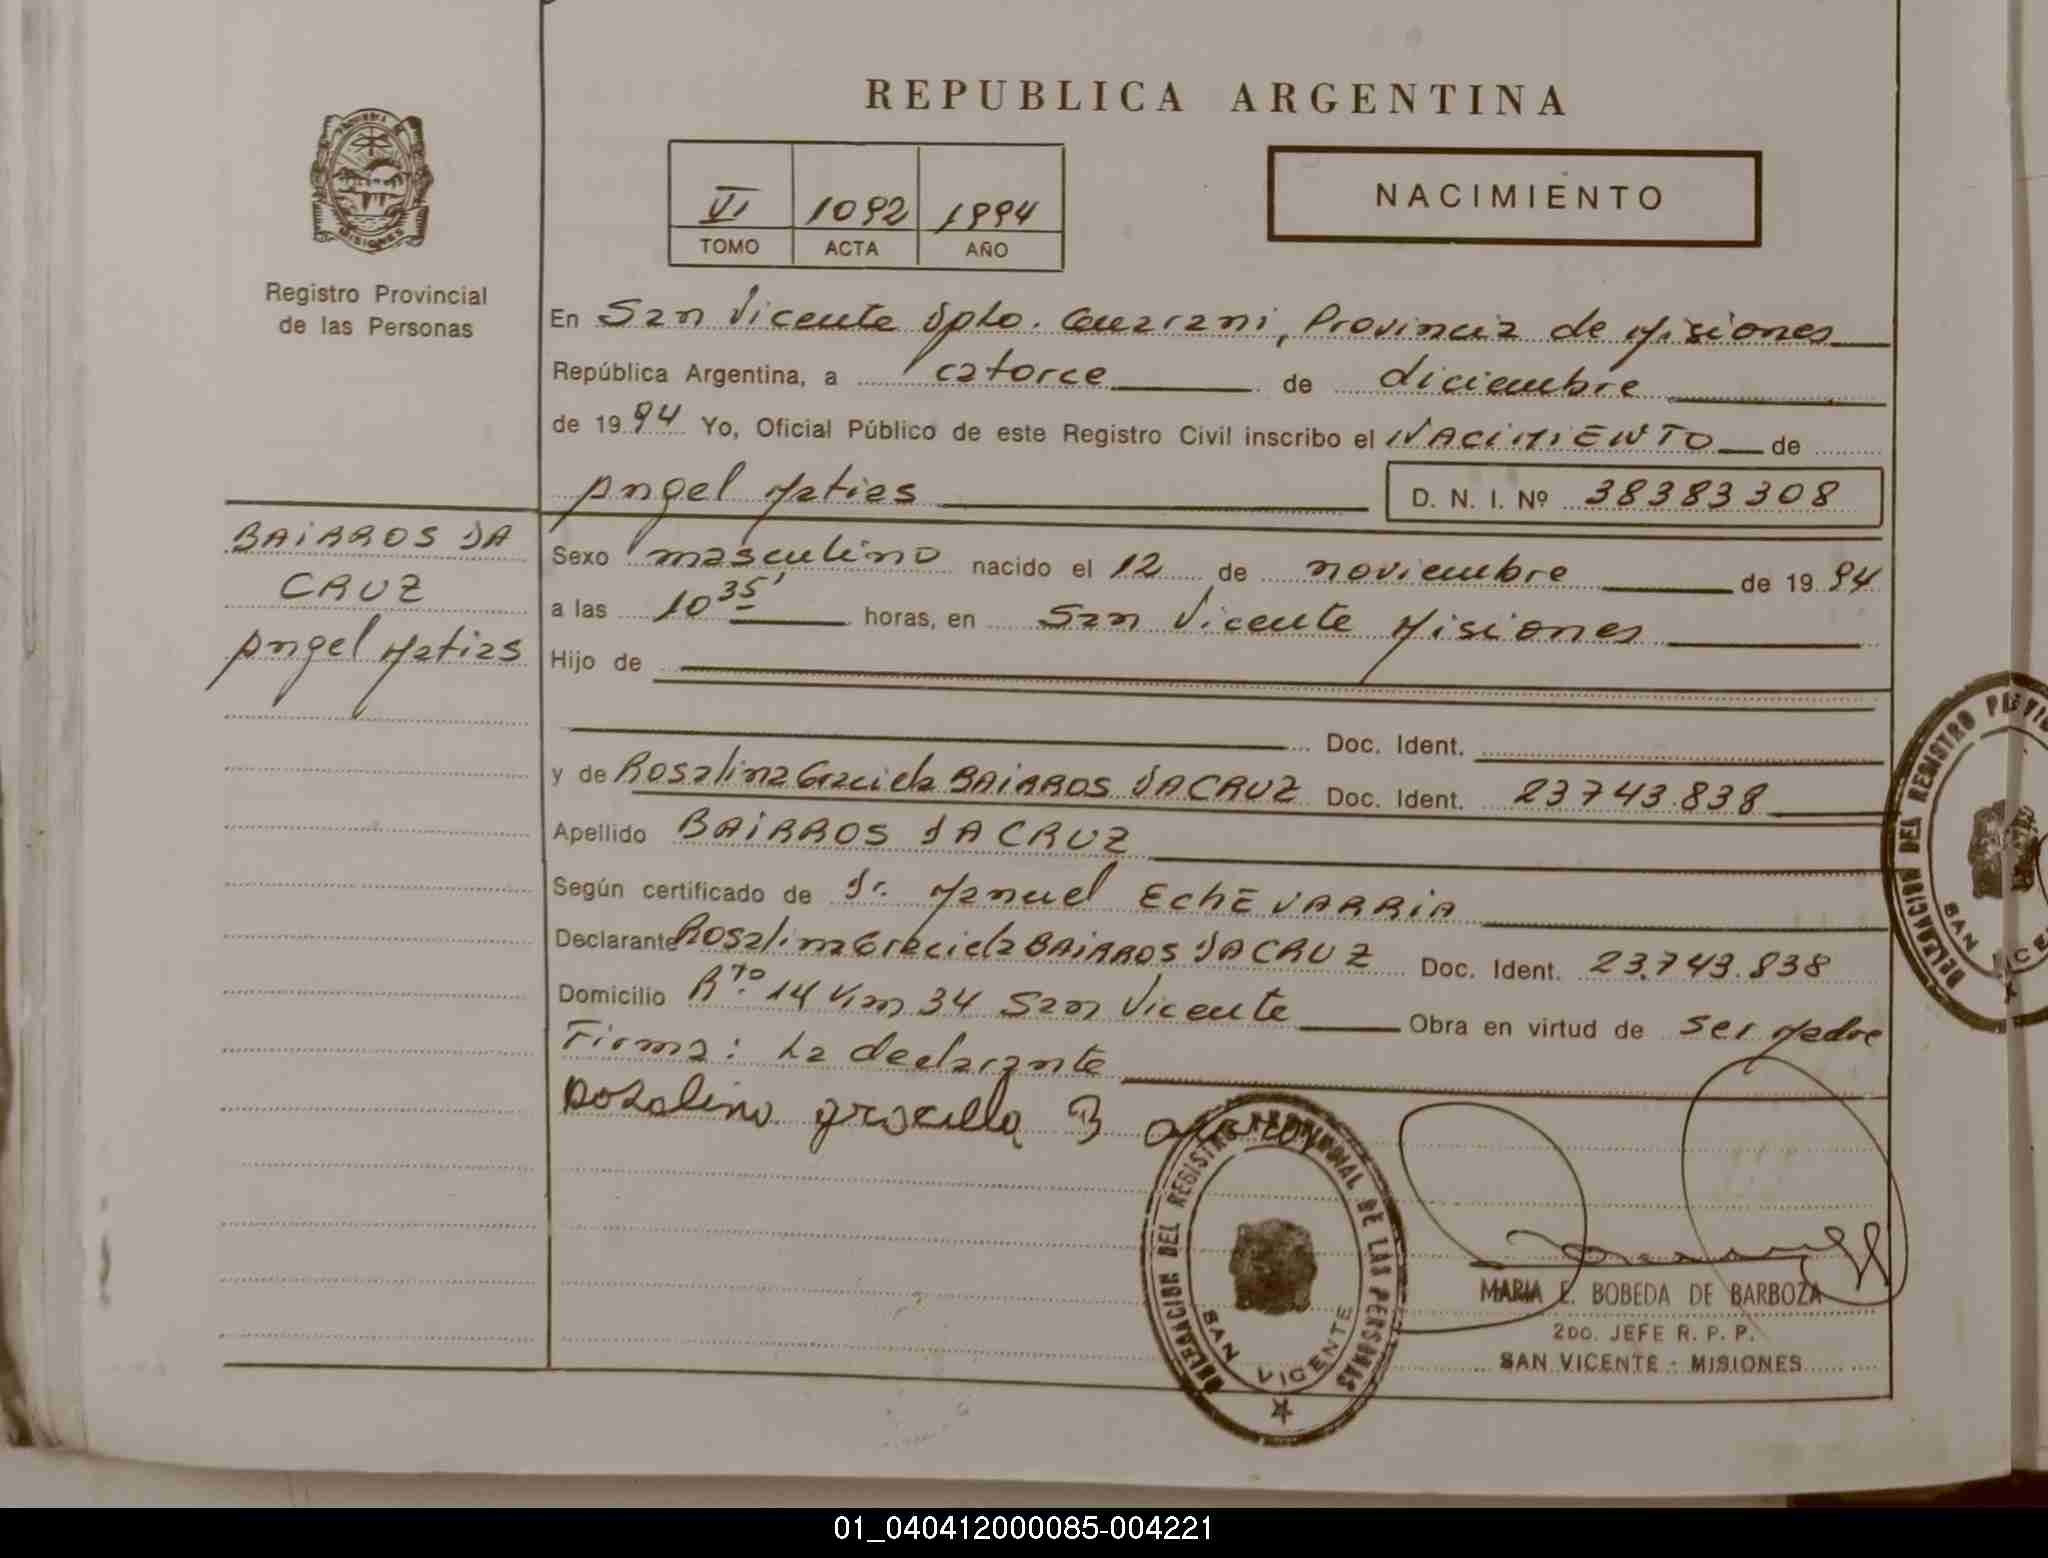 REPUBLICA ARGENTINA
PROVINCIA DE
MISIONES
Registro Provincial
de las Personas
VI 1092 1994
TOMO ACTA AÑO
NACIMIENTO
En San Vicente Dpto. Guarani, Provincia de Misiones
República Argentina, a catorce de diciembre
de 1994 Yo, Oficial Público de este Registro Civil inscribo el NACIMIENTO de
Angel Matias D. N. I. Nº 38383308
BAIRROS DA
CRUZ
Angel Matias
Sexo masculino nacido el 12 de noviembre de 1994
a las 10 35' horas, en San Vicente Misiones
Hijo de
Doc. Ident.
y de Rosalina Graciela BAIRROS DA CRUZ Doc. Ident. 23743.838
Apellido BAIRROS DA CRUZ
Según certificado de Dr. Manuel ECHEVARRIA
Declarante Rosalina Graciela BAIRROS DA CRUZ Doc. Ident. 23.743.838
Domicilio Rta. 14 Km 34 San Vicente Obra en virtud de ser Madre
Firma: La declarante
DELEGACION DEL REGISTRO PROVINCIAL DE LAS PERSONAS
SAN VICENTE
MARIA E. BOBEDA DE BARBOZA
2DO. JEFE R. P. P.
SAN VICENTE - MISIONES
DELEGACION DEL REGISTRO
SAN
01_040412000085-004221